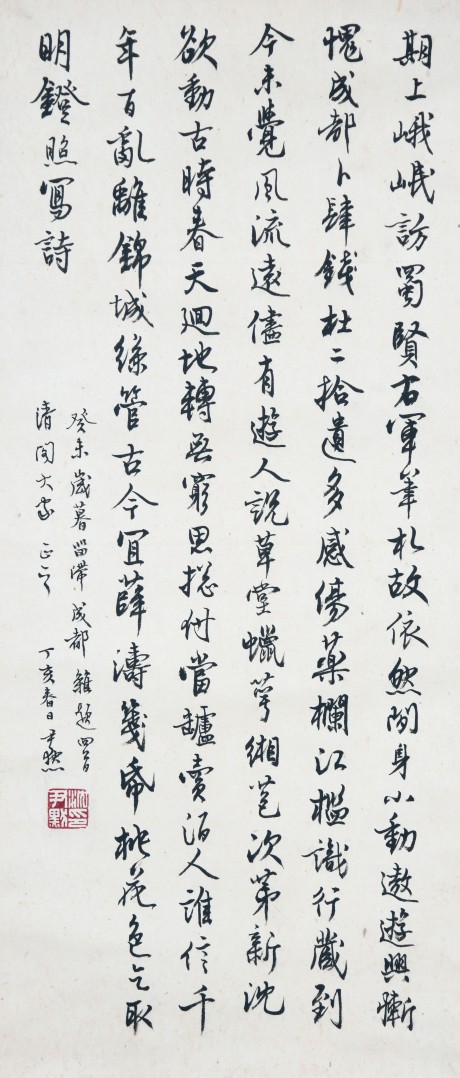 期上峨岷訪蜀賢右軍筆札故依然閒身小動遨遊興慚
愧成都卜肆錢杜二拾遺多感傷藥欄江檻識行藏到
今未覺風流遠儘有遊人說草堂蠟萼緗苞次第新沈
欲動古時春天迴地轉無窮思總付當罏賣酒人誰信千
年百亂離錦城絲管古今宜薛濤箋帋桃花色乞取
明鐙照寫詩
癸未歲暮留滯成都雜題四首
清閣大家正之
丁亥春日尹默